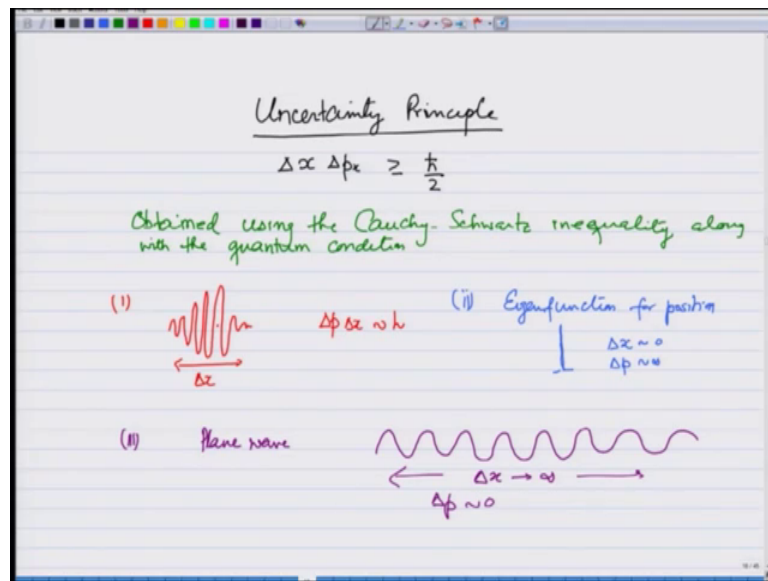 Uncertainity Principle
Δx Δpx ≥ ħ/2
Obtained using the Cauchy-Schwartz inequality along
with the quantum condition
(I) Δp Δx ~ h
Δx
(ii) Eigenfunction for position
Δx ~ 0
Δp ~ ∞
(III) Plane wave
Δx → ∞
Δp ~ 0